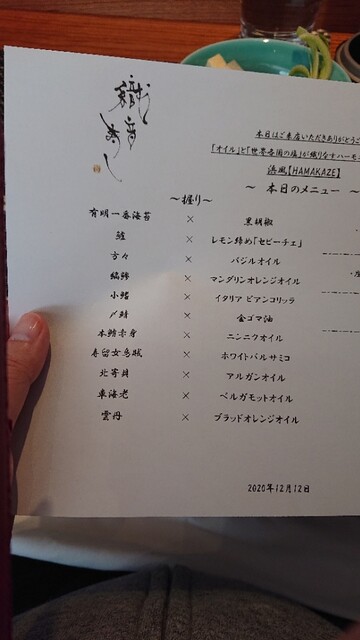 織音寿し
本日はご来店いただきありがとうご
「オイル」と「世界各国の塩」が織りなすハーモ
浜風【HAMAKAZE】
～ 本日のメニュー ～
～握り～
有明一番海苔 × 黒胡椒
鱧 × レモン締め「セビーチェ」
方々 × バジルオイル
縞鯵 × マンダリンオレンジオイル
小鰭 × イタリア ビアンコリッラ
〆鯖 × 金ゴマ油
本鮪赤身 × ニンニクオイル
春留女烏賊 × ホワイトバルサミコ
北寄貝 × アルガンオイル
車海老 × ベルガモットオイル
雲丹 × ブラッドオレンジオイル
2020年12月12日